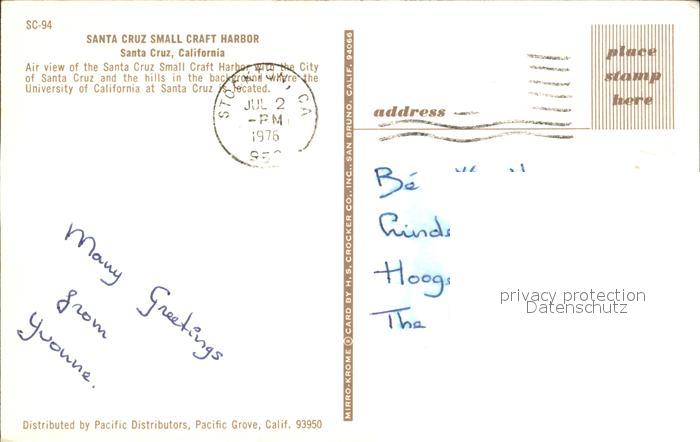 SC-94
SANTA CRUZ SMALL CRAFT HARBOR
Santa Cruz, California
Air view of the Santa Cruz Small Craft Harbor with the City
of Santa Cruz and the hills in the background where the
University of California at Santa Cruz is located.
JUL 2
-PM
1976
CA
MIRRO-KROME ® CARD BY H. S. CROCKER CO., INC., SAN BRUNO, CALIF. 94066
place
stamp
here
address
Bé
Hoogs
The
privacy protection
Datenschutz
Many Greetings
from
Yvonne.
Distributed by Pacific Distributors, Pacific Grove, Calif. 93950